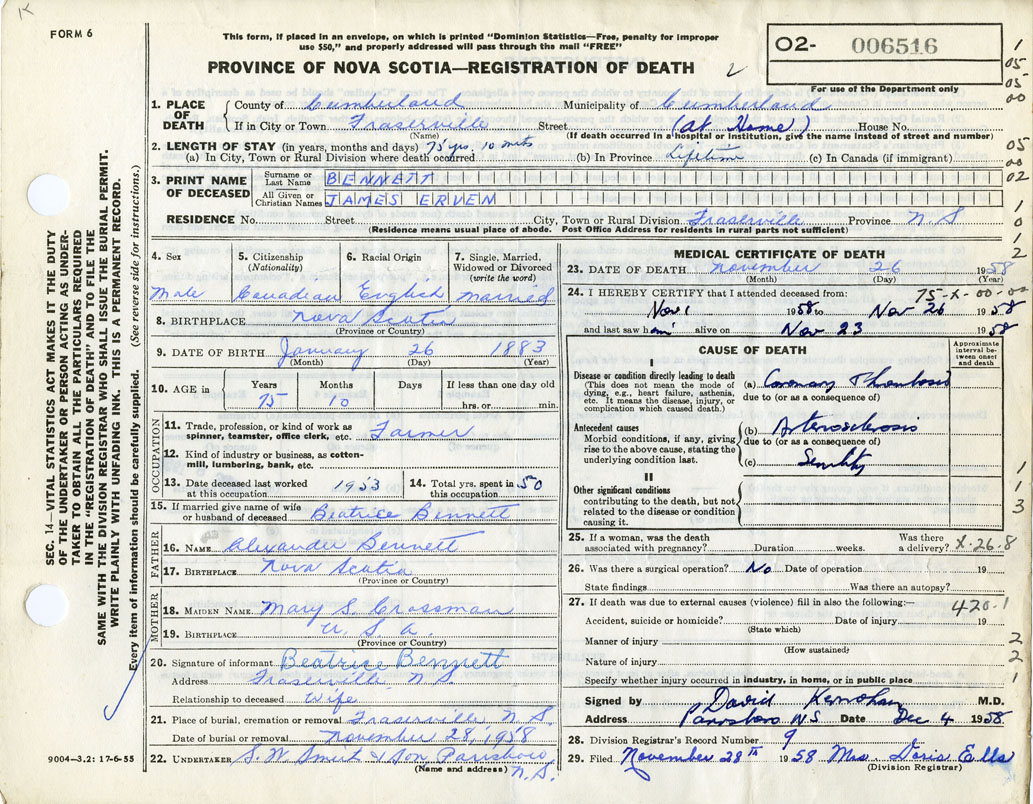 K
FORM 6
This form, if placed in an envelope, on which is printed "Dominion Statistics—Free, penalty for improper
use $50," and properly addressed will pass through the mail "FREE"
PROVINCE OF NOVA SCOTIA—REGISTRATION OF DEATH
O2- 006516
For use of the Department only
1
05
05
00
05
00
02
1
0
1
2
1. PLACE OF DEATH
County of Cumberland Municipality of Cumberland
If in City or Town Fraserville Street (At Home) House No.
(Name) (If death occurred in a hospital or institution, give the name instead of street and number)
2. LENGTH OF STAY (in years, months and days) 75 yrs. 10 mts
(a) In City, Town or Rural Division where death occurred (b) In Province Lifetime (c) In Canada (if immigrant)
3. PRINT NAME OF DECEASED
Surname or Last Name BENNETT
All Given or Christian Names JAMES ERVEN
RESIDENCE No. Street City, Town or Rural Division Fraserville Province N.S
(Residence means usual place of abode. Post Office Address for residents in rural parts not sufficient)
4. Sex 5. Citizenship (Nationality) 6. Racial Origin 7. Single, Married, Widowed or Divorced (write the word)
Male Canadian English Married
8. BIRTHPLACE Nova Scotia
(Province or Country)
9. DATE OF BIRTH January 26 1883
(Month) (Day) (Year)
10. AGE in Years Months Days If less than one day old
75 10 hrs. or min.
OCCUPATION
11. Trade, profession, or kind of work as
spinner, teamster, office clerk, etc. Farmer
12. Kind of industry or business, as cotton-
mill, lumbering, bank, etc.
13. Date deceased last worked at this occupation 1953 14. Total yrs. spent in this occupation 50
15. If married give name of wife
or husband of deceased Beatrice Bennett
FATHER
16. NAME Alexander Bennett
17. BIRTHPLACE Nova Scotia
(Province or Country)
MOTHER
18. MAIDEN NAME Mary S. Crossman
19. BIRTHPLACE U.S.A.
(Province or Country)
20. Signature of informant Beatrice Bennett
Address Fraserville N.S.
Relationship to deceased Wife
21. Place of burial, cremation or removal Fraserville N.S.
Date of burial or removal November 28, 1958
22. UNDERTAKER S.W. Smith & Son Parrsboro
(Name and address) N.S.
MEDICAL CERTIFICATE OF DEATH
23. DATE OF DEATH November 26 1958
(Month) (Day) (Year)
75-X-00-00
24. I HEREBY CERTIFY that I attended deceased from:
Nov 1 1958 to Nov 26 1958
and last saw him alive on Nov 23 1958
CAUSE OF DEATH
Approximate interval between onset and death
I
Disease or condition directly leading to death
(This does not mean the mode of
dying, e.g., heart failure, asthenia,
etc. It means the disease, injury, or
complication which caused death.)
(a) Coronary Thrombosis
due to (or as a consequence of)
Antecedent causes
Morbid conditions, if any, giving
rise to the above cause, stating the
underlying condition last.
(b) Arteriosclerosis
due to (or as a consequence of)
(c) Senility
II
Other significant conditions
contributing to the death, but not
related to the disease or condition
causing it.
1
1
3
25. If a woman, was the death Was there
associated with pregnancy? Duration weeks. a delivery? X-26-8
26. Was there a surgical operation? No Date of operation 19
State findings Was there an autopsy?
27. If death was due to external causes (violence) fill in also the following:— 420.1
Accident, suicide or homicide? Date of injury 19
(State which)
Manner of injury 2
(How sustained)
Nature of injury 2
Specify whether injury occurred in industry, in home, or in public place 1
Signed by David Kernohan M.D.
Address Parrsboro NS Date Dec 4 1958
28. Division Registrar's Record Number 9
29. Filed November 28th 1958 Mrs. Doris Ells
(Division Registrar)
SEC. 14—VITAL STATISTICS ACT MAKES IT THE DUTY
OF THE UNDERTAKER OR PERSON ACTING AS UNDER-
TAKER TO OBTAIN ALL THE PARTICULARS REQUIRED
IN THE "REGISTRATION OF DEATH" AND TO FILE THE
SAME WITH THE DIVISION REGISTRAR WHO SHALL ISSUE THE BURIAL PERMIT.
WRITE PLAINLY WITH UNFADING INK. THIS IS A PERMANENT RECORD.
Every item of information should be carefully supplied. (See reverse side for instructions.)
9004-3.2: 17-6-55